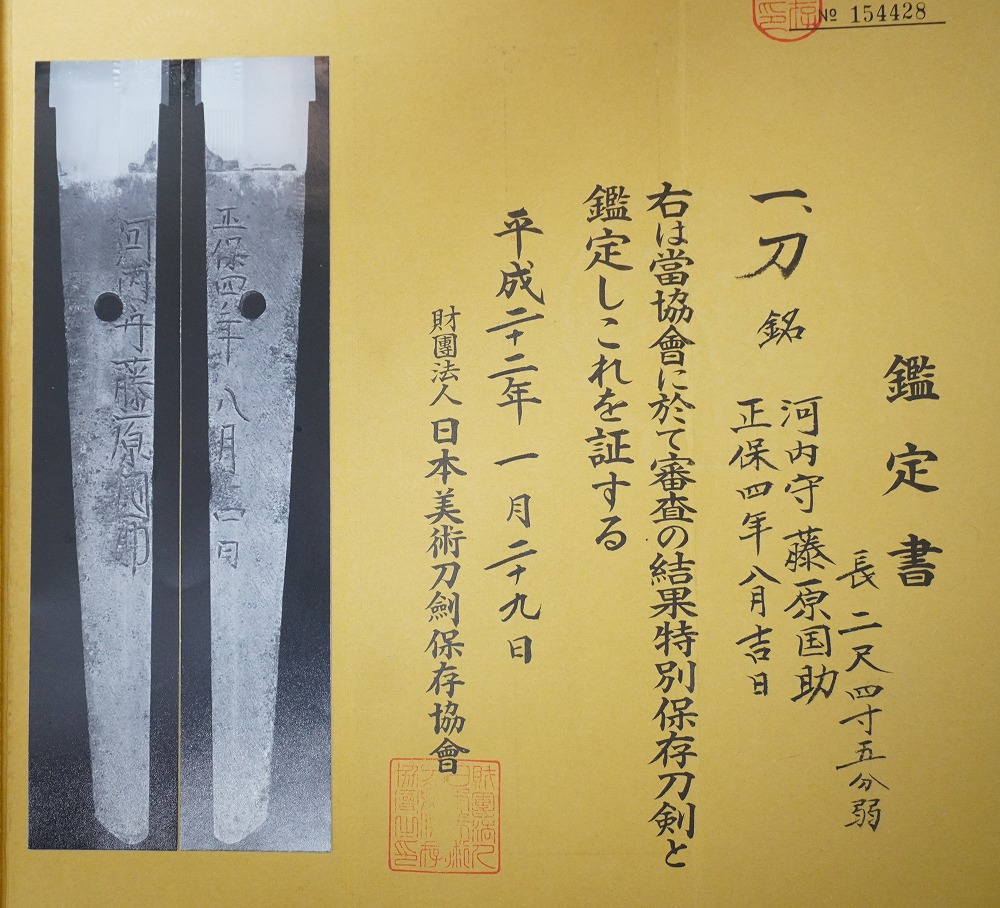 № 154428
鑑定書
長二尺四寸五分弱
一、刀 銘 河内守藤原国助
正保四年八月吉日
右は當協會に於て審査の結果特別保存刀剣と
鑑定しこれを証する
平成二十二年一月二十九日
財團法人日本美術刀劍保存協會
正保四年八月吉日
河内守藤原國助